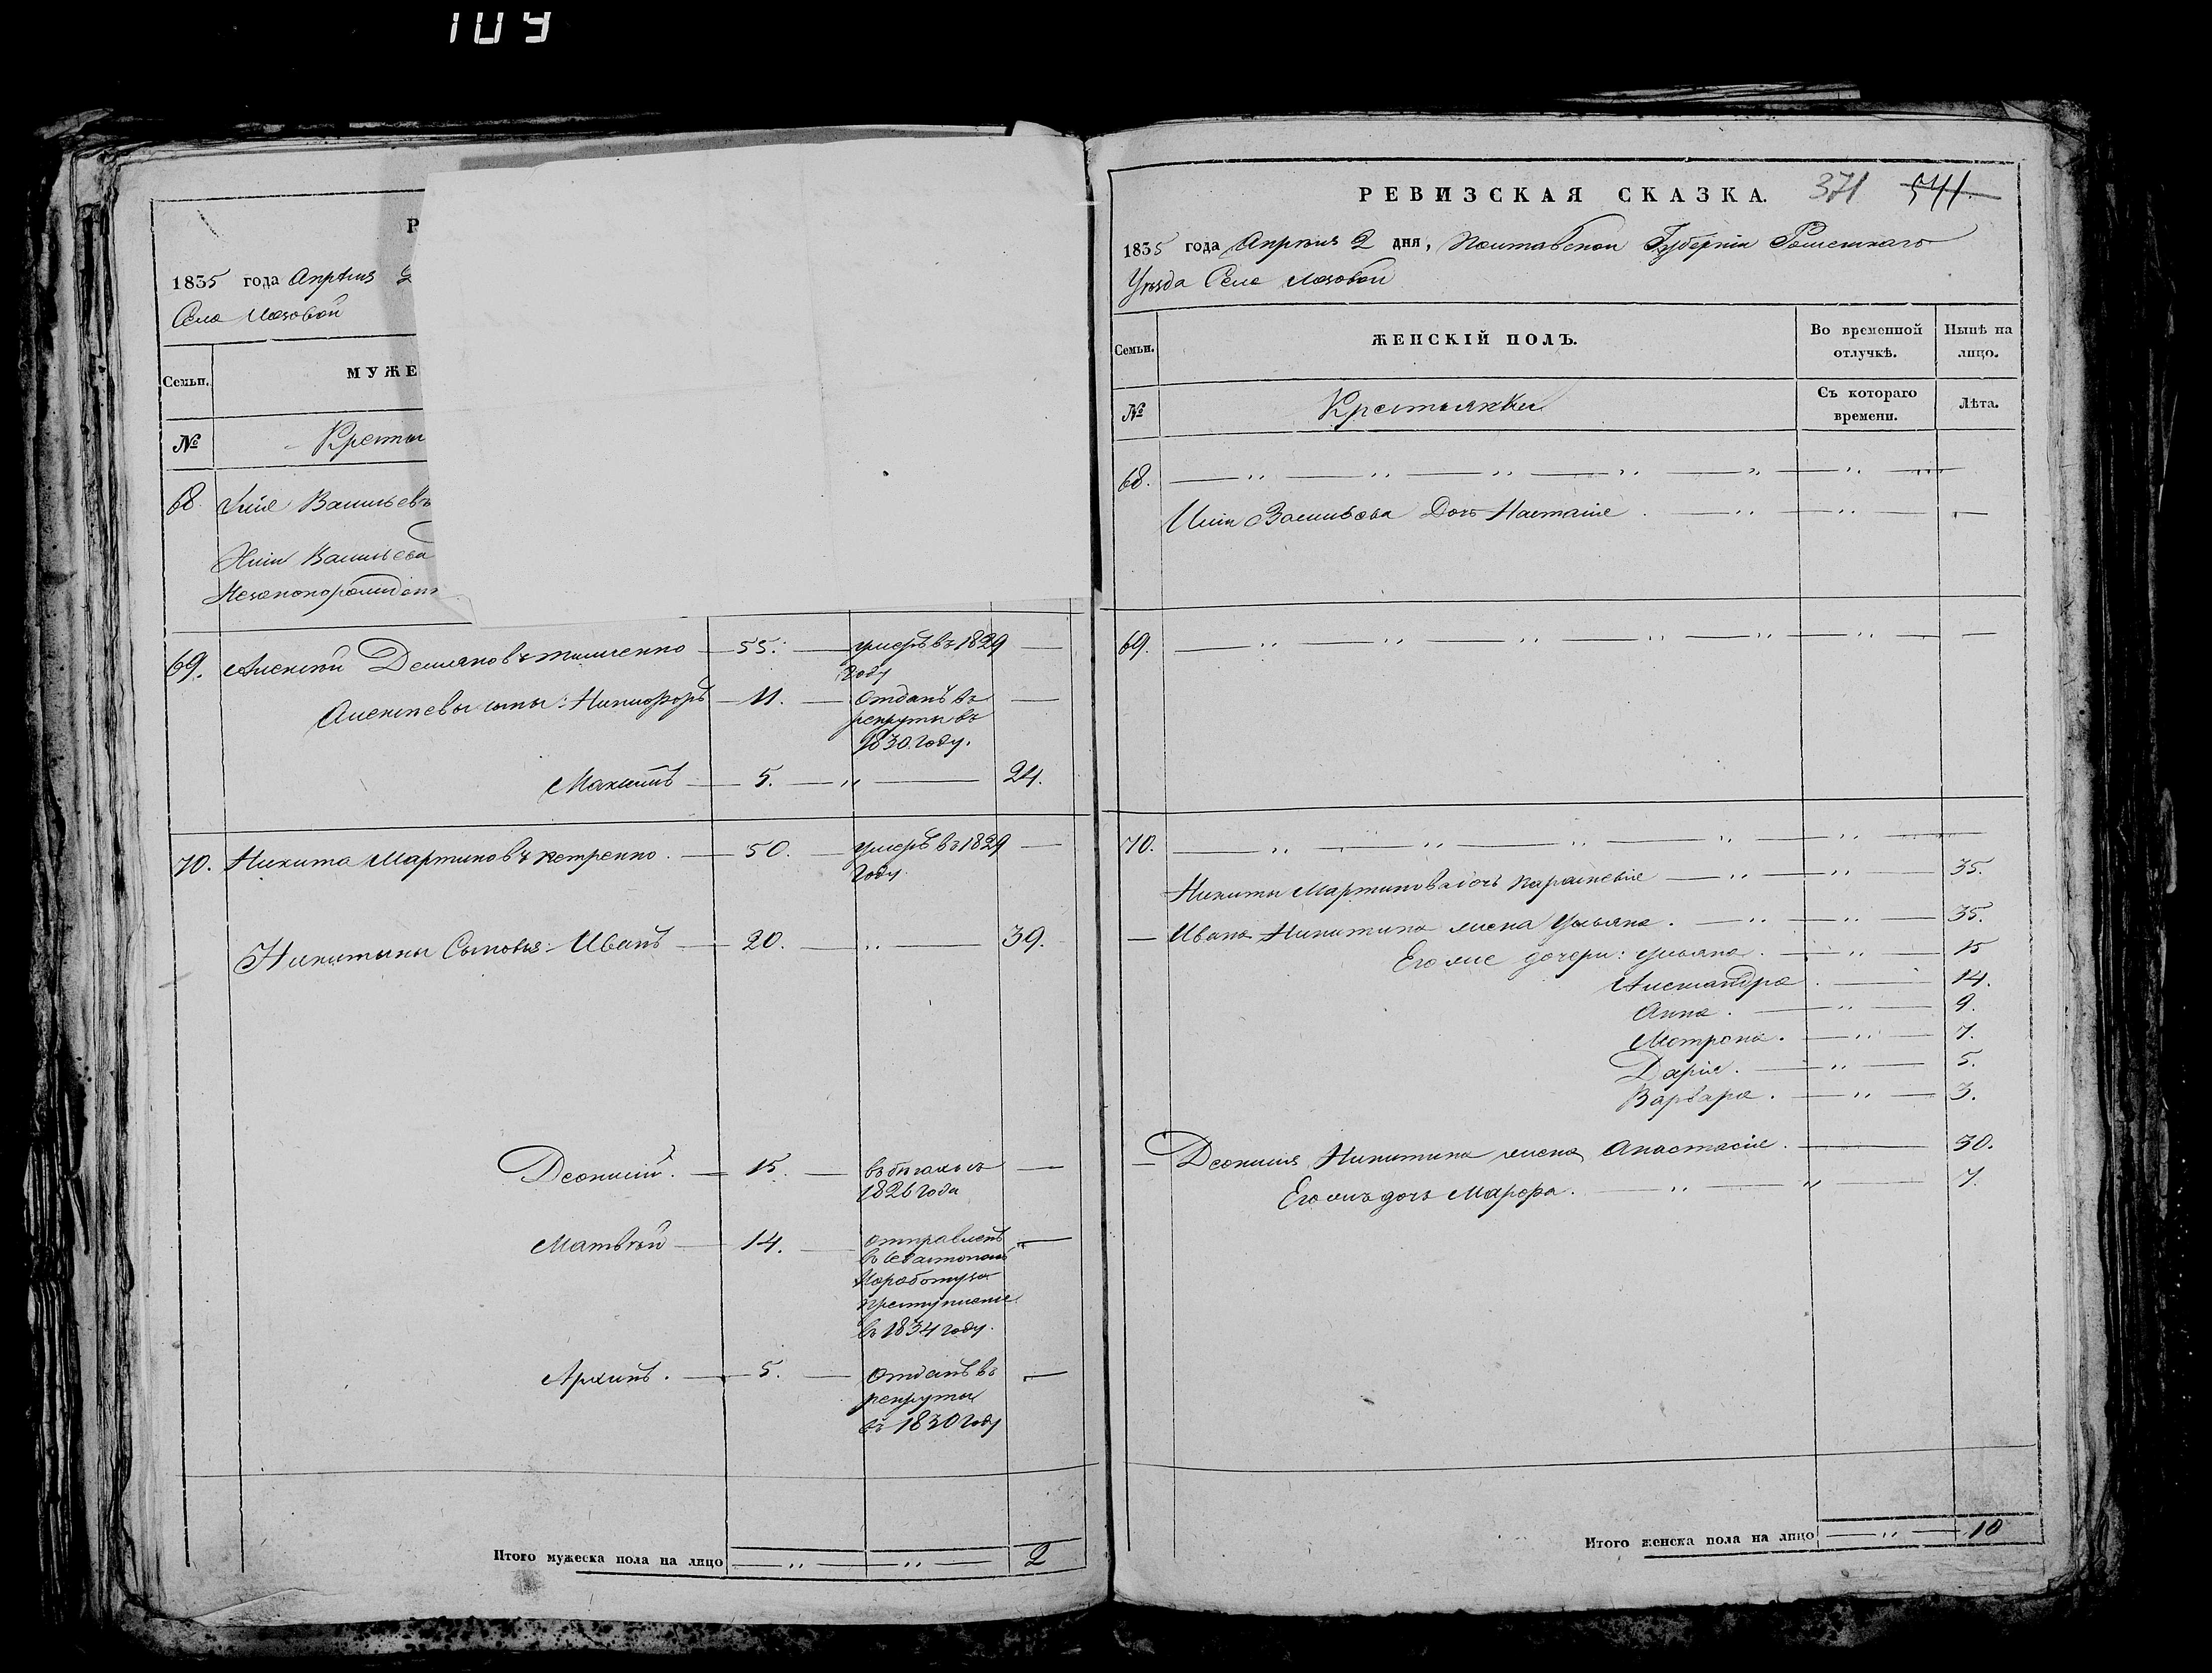 109
Р
1835 года Апрѣля 2
Села Лозовой
Семьи.
МУЖЕ
№
Крестья
68 Илія Васильевъ
Иліи Васильева
69. Алексѣй Демяновъ 55. умеръ въ 1829
году
Алексѣевы сыны: Никифоръ 11. отданъ въ
рекруты въ
1830. году.
Максимъ 5. " 24.
70. Никита Мартиновъ Петренко. 50. умеръ въ 1829
году.
Никитины Сыновья: Иванъ 20. " 39.
Деонисий. 15. въ бѣгахъ съ
1826 года
Матвѣй 14. отправленъ
въ Севастополь
преступление
въ 1834 году.
Архипъ. 5. отданъ въ
рекруты
въ 1830 году
Итого мужеска пола на лицо " " 2
РЕВИЗСКАЯ СКАЗКА. 371 541
1835 года Апрѣля 2 дня, Полтавской Губерніи Роменскаго
Уѣзда Села Лозовой
Семьи.
ЖЕНСКІЙ ПОЛЪ.
Во временной отлучкѣ.
Нынѣ на лицо.
№
Крестьянки
Съ котораго времени.
Лѣта.
68. " " " " " "
Иліи Васильева Дочь Настасія . " "
69. " " " " " "
70. " " " " "
Никиты Мартинова дочь Параскевія " " 35.
Ивана Никитина жена Ульяна . " " 35.
Его же дочери: Ульяна . " 15
Александра . 14.
Анна . " 9.
Мотрона . " 7.
Дарія . " 5.
Варвара . " 3.
Деонисия Никитина жена Анастасія . 30.
Его жъ дочь Марфа . " " 7.
Итого женска пола на лицо " 10